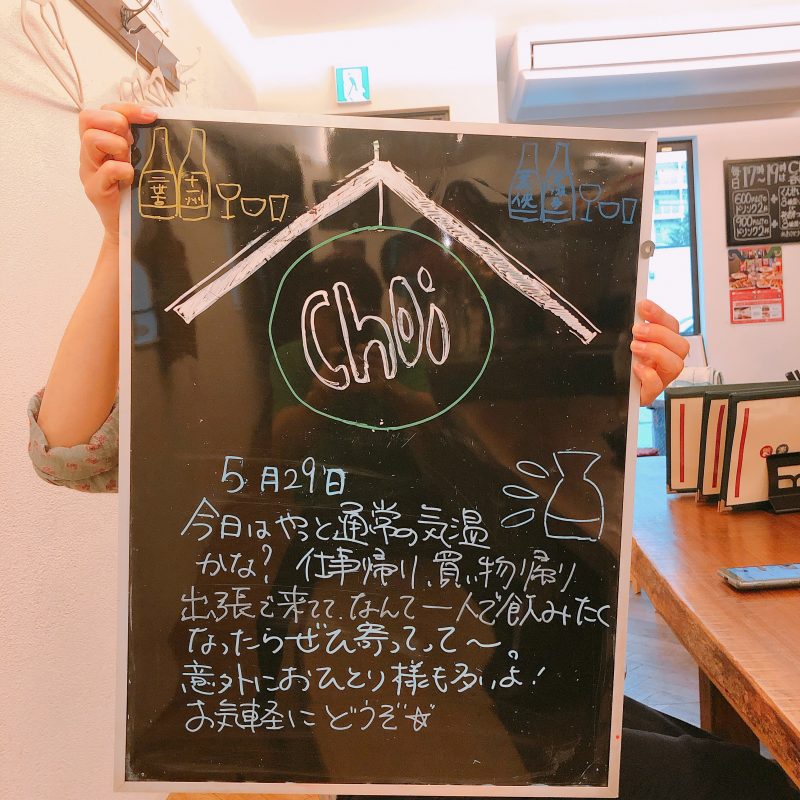 三芳
十州
Choi
5月29日
今日はやっと通常の気温
かな？ 仕事帰り、買い物帰り
出張で来てて、なんて一人で飲みたく
なったらぜひ寄ってって〜。
意外におひとり様も多いよ！
お気軽にどうぞ☆
毎日17時〜19時
600円
ドリンク2杯
900円
ドリンク2杯